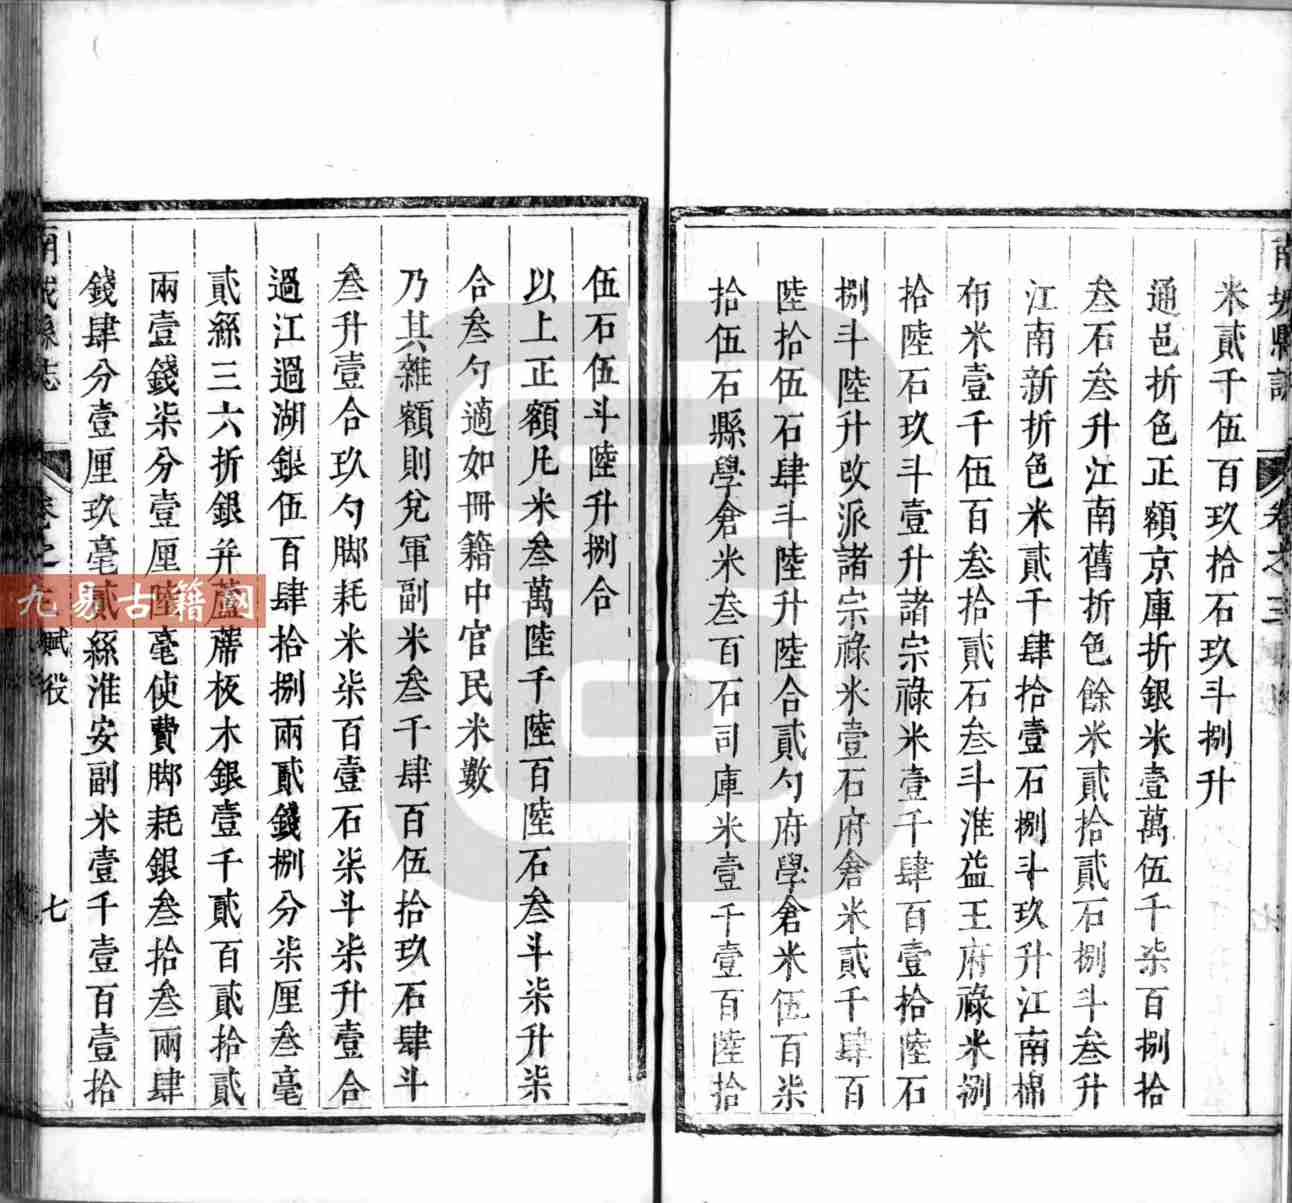 南城縣誌
卷之三
米貳千伍百玖拾石玖斗捌升
通邑折色正額京庫折銀米壹萬伍千柒百捌拾
叁石叁升江南舊折色餘米貳拾貳石捌斗叁升
江南新折色米貳千肆拾壹石捌斗玖升江南棉
布米壹千伍百叁拾貳石叁斗淮益王府祿米捌
拾陸石玖斗壹升諸宗祿米壹千肆百壹拾陸石
捌斗陸升改派諸宗祿米壹石府倉米貳千肆百
陸拾伍石肆斗陸升陸合貳勺府學倉米伍百柒
拾伍石縣學倉米叁百石司庫米壹千壹百陸拾
伍石伍斗陸升捌合
以上正額凡米叁萬陸千陸百陸石叁斗柒升柒
合叁勺適如冊籍中官民米數
乃其雜額則兌軍副米叁千肆百伍拾玖石肆斗
叁升壹合玖勺脚耗米柒百壹石柒斗柒升壹合
過江過湖銀伍百肆拾捌兩貳錢捌分柒厘叁毫
貳絲三六折銀并蘆蓆板木銀壹千貳百貳拾貳
兩壹錢柒分壹厘陸毫使費脚耗銀叁拾叁兩肆
錢肆分壹厘玖毫貳絲淮安副米壹千壹百壹拾
南城縣志
卷之三 賦役
七
九易古籍网